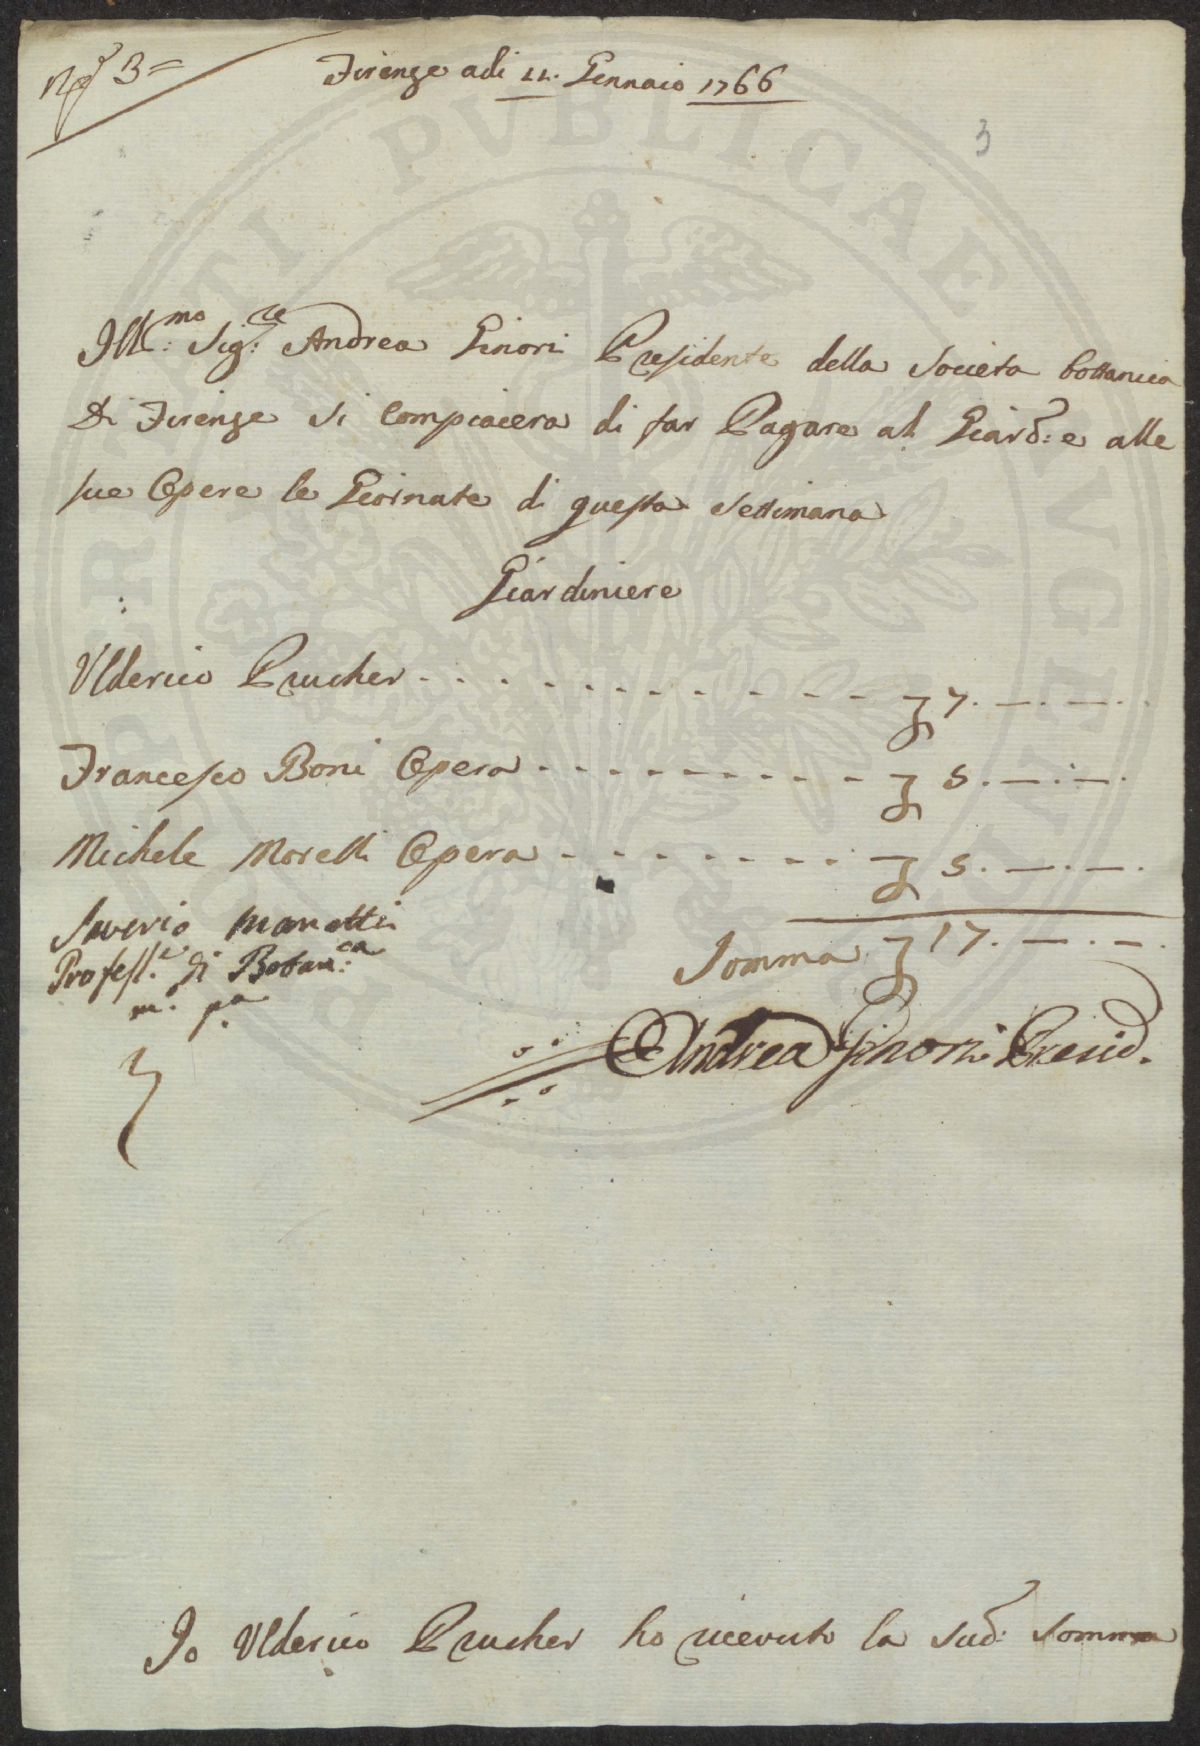 N.º 3=
Firenze adi 11. Gennaio 1766
3
Ill.mo Sig.re Andrea Ginori Presidente della Societa bottanica
Di Firenze si Compiacera di far Pagare al Giard:e alle
sue Opere le Giornate di questa Settimana
Giardiniere
Ulderico Prucher - - - - - - - - - - - 7. —. —.
Francesco Boni Opera - - - - - - - - - - 5. —. —.
Michele Morelli Opera - - - - - - - - 5. —. —.
Saverio Manetti
Profess.e di Botan.ca
m.o p.a
Somma 17. —. —.
Andrea Ginori Presid.
Io Ulderico Prucher ho ricevuto la sud: Somma
PVBLICAE